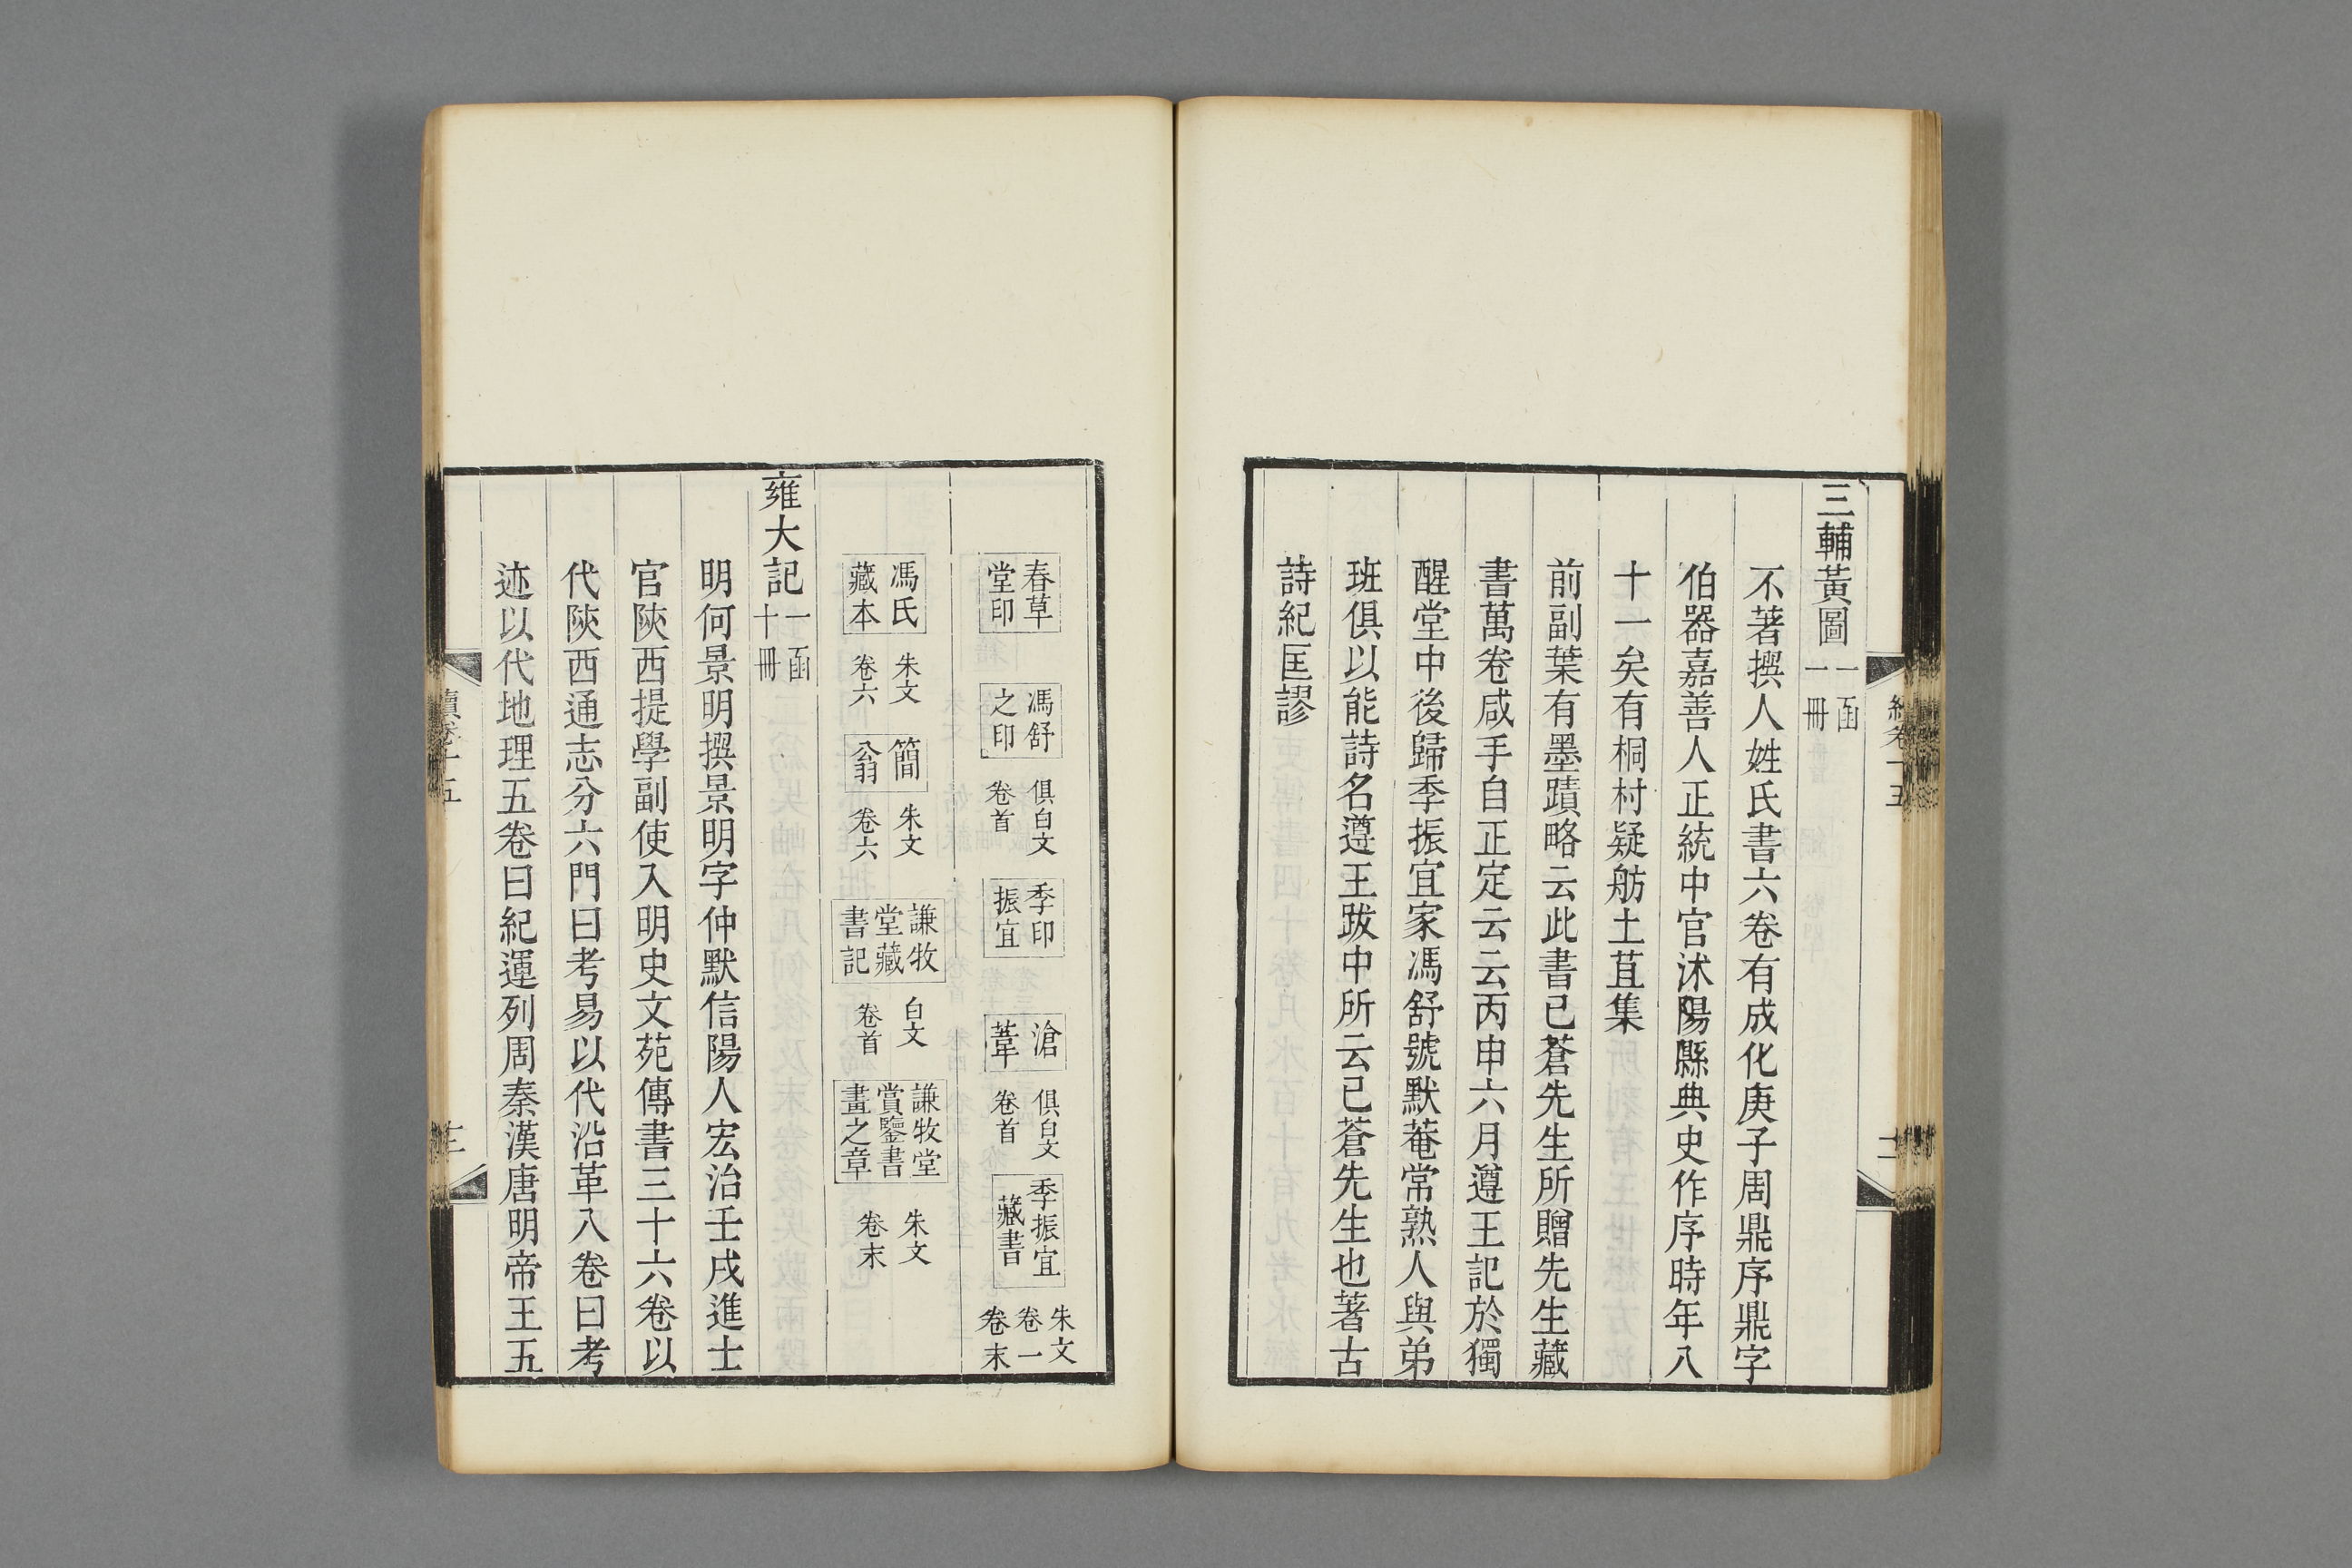 三輔黃圖一函一冊
不著撰人姓氏書六卷有成化庚子周鼎序鼎字
伯器嘉善人正統中官沭陽縣典史作序時年八
十一矣有桐村疑舫土苴集
前副葉有墨蹟略云此書已蒼先生所贈先生藏
書萬卷咸手自正定云云丙申六月遵王記於獨
醒堂中後歸季振宜家馮舒號默菴常熟人與弟
班俱以能詩名遵王跋中所云已蒼先生也著古
詩紀匡謬
春草堂印 馮舒之印 俱白文卷首 季印振宜 滄葦 俱白文卷首 季振宜藏書 朱文卷一卷末
馮氏藏本 朱文卷六 簡翁 朱文卷六 謙牧堂藏書記 白文卷首 謙牧堂賞鑒書畫之章 朱文卷末
雍大記一函十冊
明何景明撰景明字仲默信陽人宏治壬戌進士
官陝西提學副使入明史文苑傳書三十六卷以
代陝西通志分六門曰考易以代沿革八卷曰考
迹以代地理五卷曰紀運列周秦漢唐明帝王五